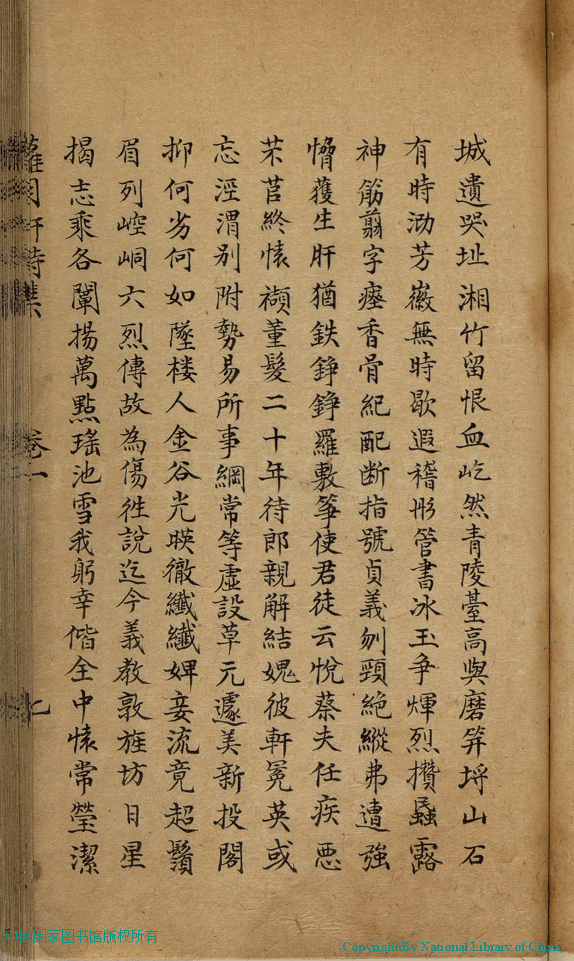 城遺哭址湘竹留恨血屹然青陵臺高與磨笄埓山石
有時泐芳徽無時歇遐稽彤管書冰玉爭煇烈攢蝨露
神筋翦字瘞香骨紀配断指號貞義刎頸絕縱弗遭強
脅蒦生肝猶鉄錚錚羅敷箏使君徒云悅蔡夫任疾惡
芣苢終懐襭董髮二十年待郎親解結媿彼軒冕英或
忘涇渭別附勢易所事綱常等虛設草元遽美新投閣
抑何劣何如墜楼人金谷光暎徹纖纖婢妾流竟超鬚
眉列崆峒六烈傳故為傷徃說迄今義敎敦旌坊日星
揭志乘各闡揚萬點瑤池雪我躬幸偕全中懐常瑩潔
卷一
七
中国国家图书馆版权所有
Copyright By National Library of China